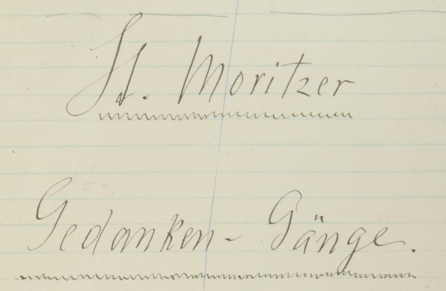 St. Moritzer
Gedanken- Gänge.